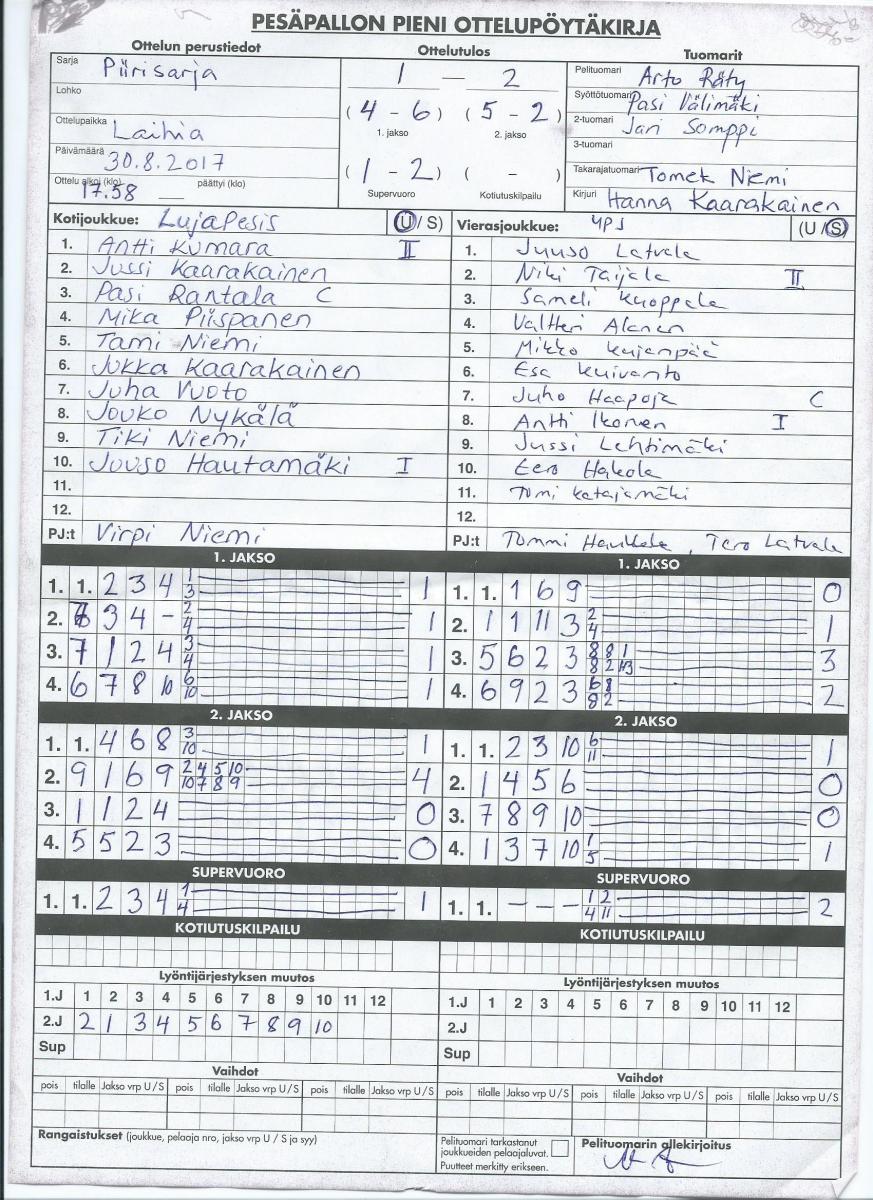 PESÄPALLON PIENI OTTELUPÖYTÄKIRJA
Ottelun perustiedot
Sarja Piirisarja
Lohko
Ottelupaikka Laihia
Päivämäärä 30.8.2017
Ottelu alkoi (klo) 17.58 päättyi (klo)
Ottelutulos
1 — 2
(4 - 6) (5 - 2)
1. jakso 2. jakso
(1 - 2) ( - )
Supervuoro Kotiutuskilpailu
Tuomarit
Pelituomari Arto Räty
Syöttötuomari Pasi Välimäki
2-tuomari Jari Somppi
3-tuomari
Takarajatuomari Tomek Niemi
Kirjuri Hanna Kaarakainen
Kotijoukkue: LujaPesis (U/S)
1. Antti Kumara II
2. Jussi Kaarakainen
3. Pasi Rantala C
4. Mika Piispanen
5. Tami Niemi
6. Jukka Kaarakainen
7. Juha Vuoto
8. Jouko Nykälä
9. Tiki Niemi
10. Juuso Hautamäki I
11.
12.
PJ:t Virpi Niemi
Vierasjoukkue: YPJ (U/S)
1. Juuso Latvala
2. Niki Taijala II
3. Sameli Kuoppala
4. Valtteri Alanen
5. Mikko Kujanpää
6. Esa Kuivanto
7. Juho Haapoja C
8. Antti Ikonen I
9. Jussi Lehtimäki
10. Eero Hakola
11. Tomi Katajamäki
12.
PJ:t Tommi , Tero Latvala
1. JAKSO
1. 1. 2 3 4 1 3 1
2. 3 4 - 2 4 1
3. 7 1 2 4 3 4 1
4. 6 7 8 10 6 10 1
2. JAKSO
1. 1. 4 6 8 3 10 1
2. 9 1 6 9 2 4 5 10 10 7 8 9 4
3. 1 1 2 4 0
4. 5 5 2 3 0
SUPERVUORO
1. 1. 2 3 4 1 4 1
KOTIUTUSKILPAILU
Lyöntijärjestyksen muutos
1.J 1 2 3 4 5 6 7 8 9 10 11 12
2.J 2 1 3 4 5 6 7 8 9 10
Sup
Vaihdot
pois tilalle Jakso vrp U/S pois tilalle Jakso vrp U/S pois tilalle Jakso vrp U/S
Rangaistukset (joukkue, pelaaja nro, jakso vrp U / S ja syy)
1. JAKSO
1. 1. 1 6 9 0
2. 1 1 11 3 2 4 1
3. 5 6 2 3 8 8 1 8 2 3
4. 6 9 2 3 6 8 8 2 2
2. JAKSO
1. 1. 2 3 10 6 11 1
2. 1 4 5 6 0
3. 7 8 9 10 0
4. 1 3 7 10 1 5 1
SUPERVUORO
1. 1. - - - 1 2 4 11 2
KOTIUTUSKILPAILU
Lyöntijärjestyksen muutos
1.J 1 2 3 4 5 6 7 8 9 10 11 12
2.J
Sup
Vaihdot
pois tilalle Jakso vrp U/S pois tilalle Jakso vrp U/S pois tilalle Jakso vrp U/S
Pelituomari tarkastanut
joukkueiden pelaajaluvat.
Puutteet merkitty erikseen.
Pelituomarin allekirjoitus